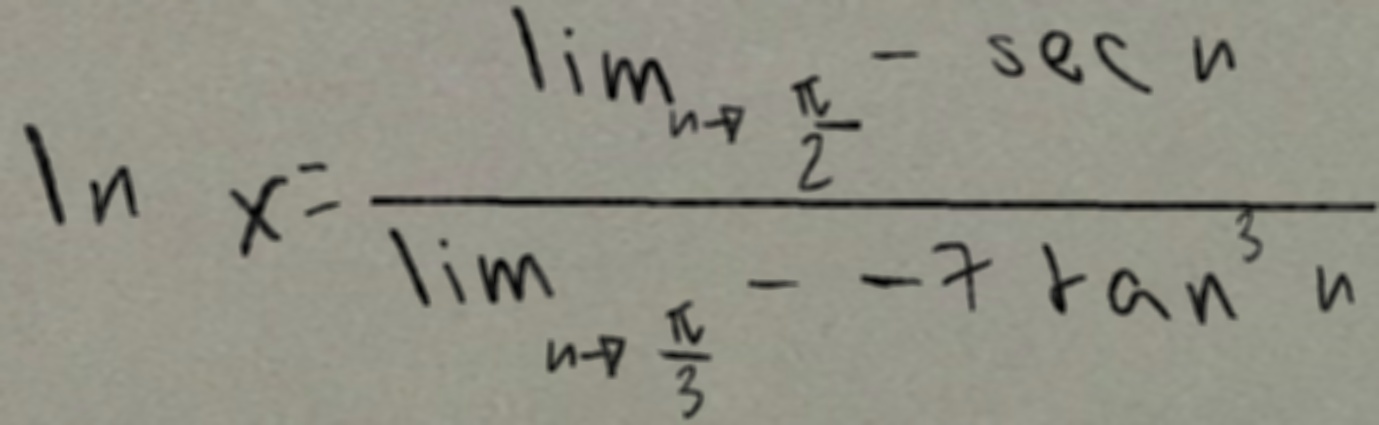 ln x = \frac{\lim_{n \to \frac{\pi}{2}} - \sec n}{\lim_{n \to \frac{\pi}{3}} - -7 \tan^3 n}